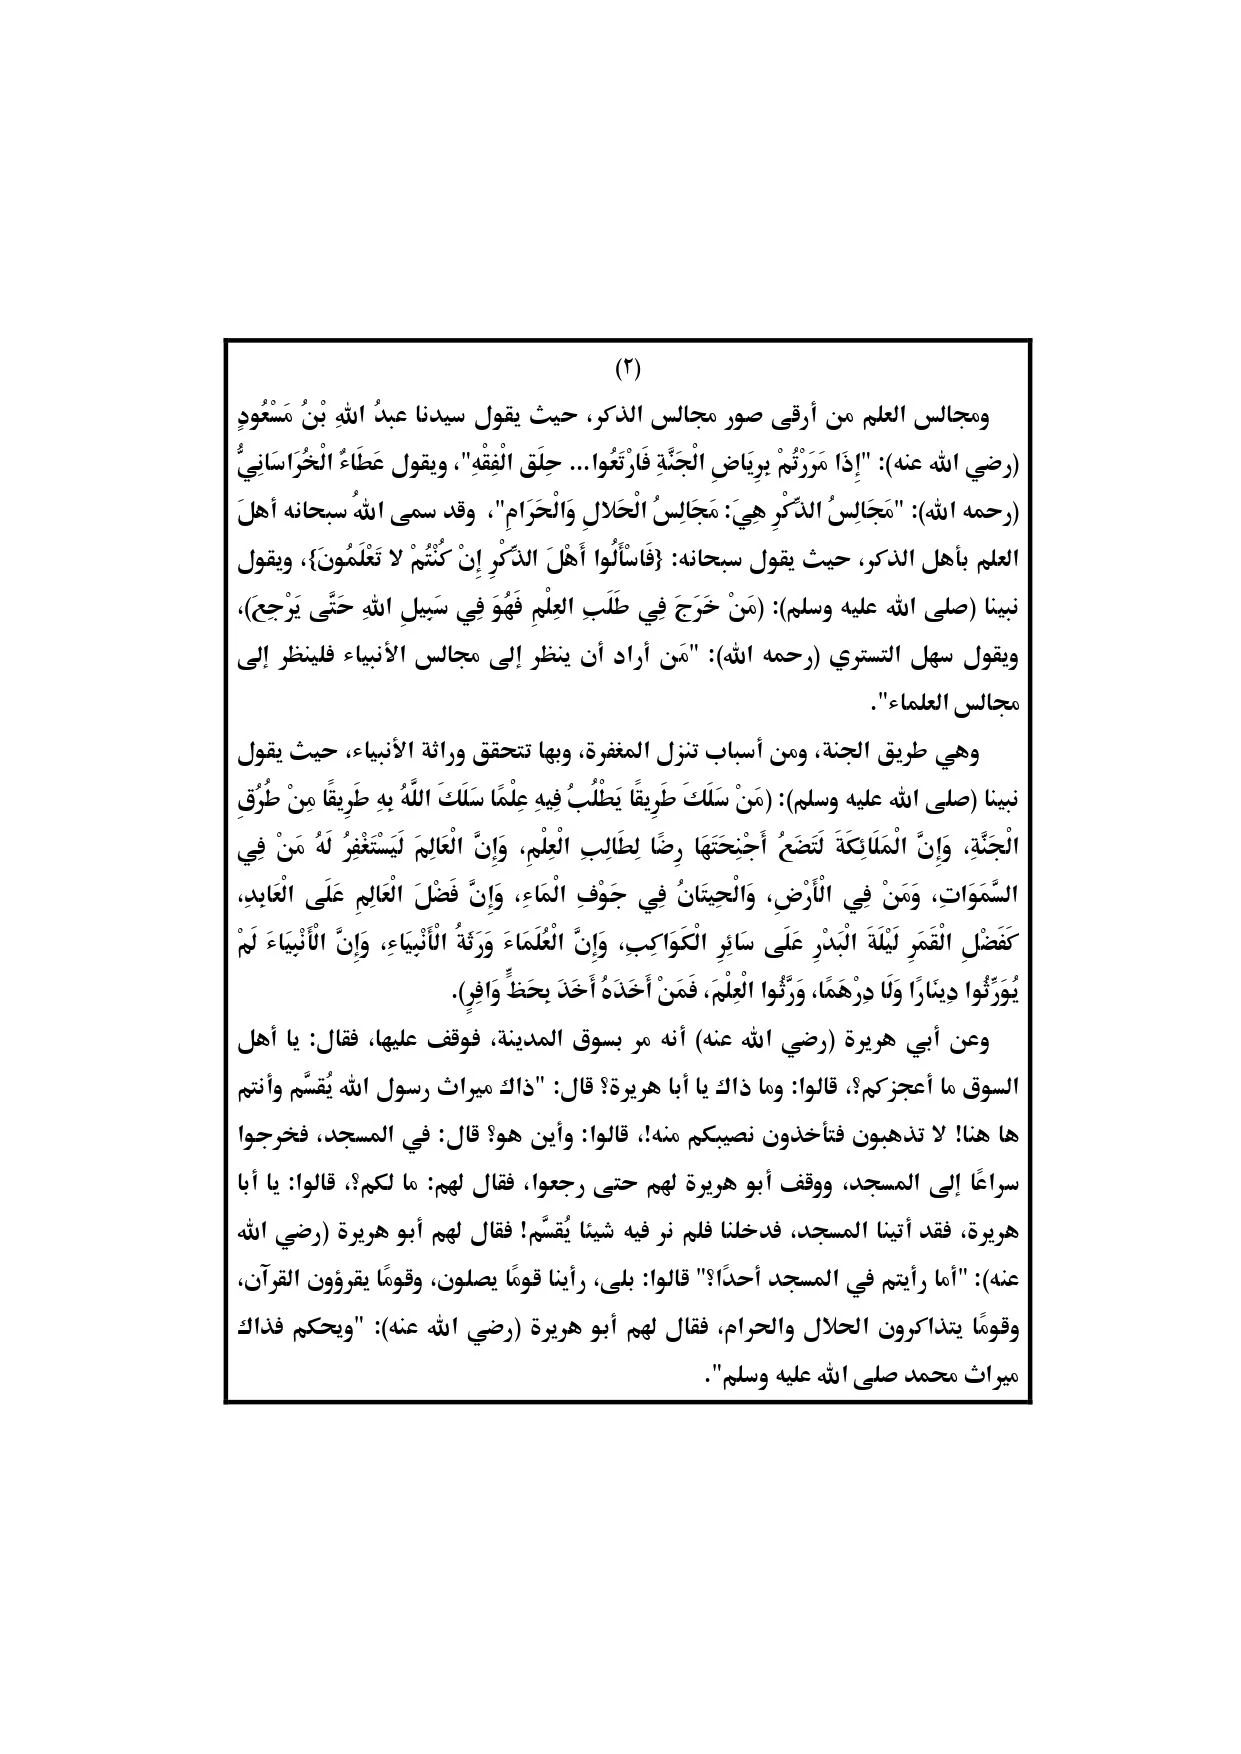 (٢)
ومجالس العلم من أرقى صور مجالس الذكر، حيث يقول سيدنا عبدُ اللهِ بْنُ مَسْعُودٍ
(رضي الله عنه): "إِذَا مَرَرْتُمْ بِرِيَاضِ الْجَنَّةِ فَارْتَعُوا... حِلَق الْفِقْهِ"، ويقول عَطَاءٌ الْخُرَاسَانِيُّ
(رحمه الله): "مَجَالِسُ الذِّكْرِ هِيَ: مَجَالِسُ الْحَلالِ وَالْحَرَامِ"، وقد سمى اللهُ سبحانه أهلَ
العلم بأهل الذكر، حيث يقول سبحانه: {فَاسْأَلُوا أَهْلَ الذِّكْرِ إِنْ كُنْتُمْ لا تَعْلَمُونَ}، ويقول
نبينا (صلى الله عليه وسلم): (مَنْ خَرَجَ فِي طَلَبِ العِلْمِ فَهُوَ فِي سَبِيلِ اللهِ حَتَّى يَرْجِعَ)،
ويقول سهل التستري (رحمه الله): "مَن أراد أن ينظر إلى مجالس الأنبياء فلينظر إلى
مجالس العلماء".
وهي طريق الجنة، ومن أسباب تنزل المغفرة، وبها تتحقق وراثة الأنبياء، حيث يقول
نبينا (صلى الله عليه وسلم): (مَنْ سَلَكَ طَرِيقًا يَطْلُبُ فِيهِ عِلْمًا سَلَكَ اللَّهُ بِهِ طَرِيقًا مِنْ طُرُقِ
الْجَنَّةِ، وَإِنَّ الْمَلَائِكَةَ لَتَضَعُ أَجْنِحَتَهَا رِضًا لِطَالِبِ الْعِلْمِ، وَإِنَّ الْعَالِمَ لَيَسْتَغْفِرُ لَهُ مَنْ فِي
السَّمَوَاتِ، وَمَنْ فِي الْأَرْضِ، وَالْحِيتَانُ فِي جَوْفِ الْمَاءِ، وَإِنَّ فَضْلَ الْعَالِمِ عَلَى الْعَابِدِ،
كَفَضْلِ الْقَمَرِ لَيْلَةَ الْبَدْرِ عَلَى سَائِرِ الْكَوَاكِبِ، وَإِنَّ الْعُلَمَاءَ وَرَثَةُ الْأَنْبِيَاءِ، وَإِنَّ الْأَنْبِيَاءَ لَمْ
يُوَرِّثُوا دِينَارًا وَلَا دِرْهَمًا، وَرَّثُوا الْعِلْمَ، فَمَنْ أَخَذَهُ أَخَذَ بِحَظٍّ وَافِرٍ).
وعن أبي هريرة (رضي الله عنه) أنه مر بسوق المدينة، فوقف عليها، فقال: يا أهل
السوق ما أعجزكم؟، قالوا: وما ذاك يا أبا هريرة؟ قال: "ذاك ميراث رسول الله يُقسَّم وأنتم
ها هنا! لا تذهبون فتأخذون نصيبكم منه!، قالوا: وأين هو؟ قال: في المسجد، فخرجوا
سراعًا إلى المسجد، ووقف أبو هريرة لهم حتى رجعوا، فقال لهم: ما لكم؟، قالوا: يا أبا
هريرة، فقد أتينا المسجد، فدخلنا فلم نر فيه شيئا يُقسَّم! فقال لهم أبو هريرة (رضي الله
عنه): "أما رأيتم في المسجد أحدًا؟" قالوا: بلى، رأينا قومًا يصلون، وقومًا يقرؤون القرآن،
وقومًا يتذاكرون الحلال والحرام، فقال لهم أبو هريرة (رضي الله عنه): "ويحكم فذاك
ميراث محمد صلى الله عليه وسلم".